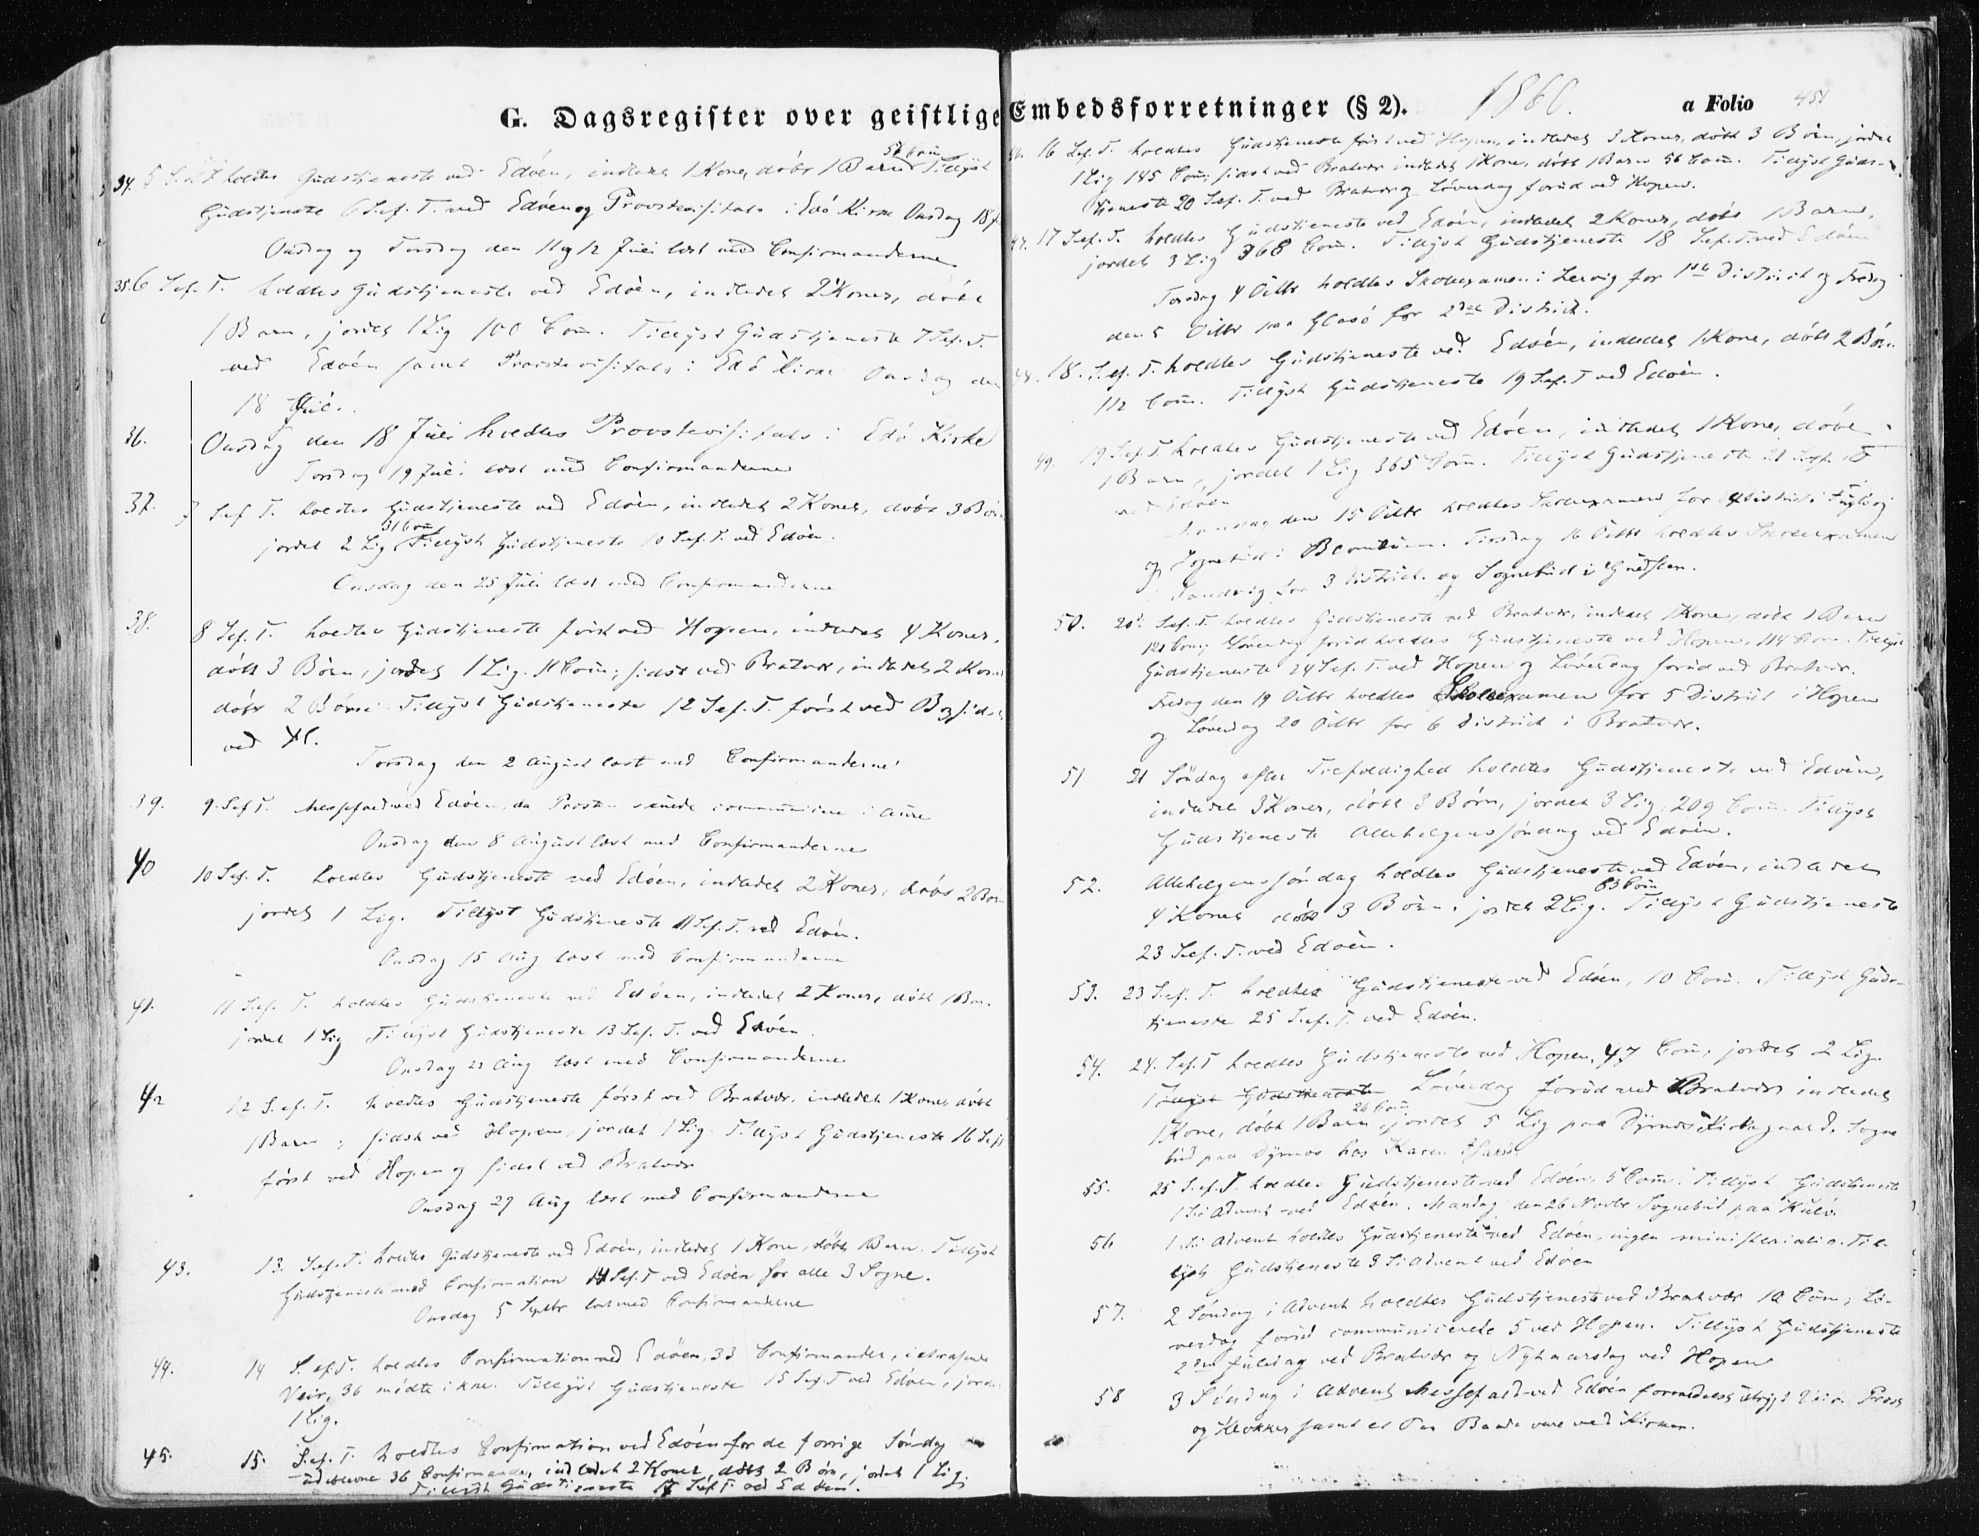 G. Dagsregister over geistlige Embedsforretninger (§ 2). 1860. a Folio 451
34. 5 S. ef. T. holdtes Gudstjeneste ved Edöen, indledet 1 Kone, döbt 1 Barn 57 Com. Tillyst
Gudstjeneste 6 S. ef. T. ved Edöen og Provstevisitats i Edö Kirke Onsdag 18 J
Onsdag og Torsdag den 11 og 12 Juli læst med Confirmanderne
35. 6 S. ef. T. holdtes Gudstjeneste ved Edöen, indledet 2 Koner, döbt
1 Barn, jordet 1 Lig 100 Com. Tillyst Gudstjeneste 7 S. ef. T.
ved Edöen samt Provstevisitats i Edö Kirke Onsdag den
18 Juli.
36. Onsdag den 18 Juli holdtes Provstevisitats i Edö Kirke
Torsdag 19 Juli læst med Confirmanderne
37. 7 S. ef. T. holdtes Gudstjeneste ved Edöen, indledet 2 Koner, döbt 3 Börn
jordet 2 Lig 31 Com. Tillyst Gudstjeneste 10 S. ef. T. ved Edöen.
Onsdag den 25 Juli læst med Confirmanderne
38. 8 S. ef. T. holdtes Gudstjeneste först ved Hopen, indledet 4 Koner,
döbt 3 Börn, jordet 1 Lig. 11 Com; sidst ved Bratvær, indledet 2 Koner
döbt 2 Börn. Tillyst Gudstjeneste 12 S. ef. T. först ved B og sidst
ved H.
Torsdag den 2 August læst med Confirmanderne
39. 9. S. ef. T. Messefald ved Edöen, da Præsten communicere i Aure
Onsdag den 8 August læst med Confirmanderne
40 10 S. ef. T. holdtes Gudstjeneste ved Edöen, indledet 2 Koner, döbt 2 Börn
jordet 1 Lig. Tillyst Gudstjeneste 11 S. ef. T. ved Edöen.
Onsdag 15 Aug læst med Confirmanderne
41. 11 S. ef. T. holdtes Gudstjeneste ved Edöen, indledet 2 Koner, döbt 1 Barn.
jordet 1 Lig Tillyst Gudstjeneste 13 S. ef. T. ved Edöen.
Onsdag 22 Aug læst med Confirmanderne
42 12 S. ef. T. holdtes Gudstjeneste först ved Bratvær, indledet 1 Kone, döbt
1 Barn; sidst ved Hopen, jordet 1 Lig. Tillyst Gudstjeneste 16 S. ef T
först ved Hopen og sidst ved Bratvær
Onsdag 29 Aug læst med Confirmanderne
43. 13. S. ef. T. holdtes Gudstjeneste ved Edöen, indledet 1 Kone, döbt 1 Barn. Tillyst
Gudstjeneste med Confirmation 14 S. ef. T ved Edöen for alle 3 Sogne.
Onsdag 5 Septbr læst med Confirmanderne
44. 14 S. ef. T. holdtes Confirmation ved Edöen, 33 Confirmander,
Veir, 36 mödte ikke. Tillyst Gudstjeneste 15 S. ef. T ved Edöen, jordet
1 Lig.
45. 15. S. ef. T. holdtes Confirmation ved Edöen for de forrige Söndag
udeblevne 36 Confirmander, indledet 2 Koner, döbt 2 Börn, jordet 1 Lig.
Tillyst Gudstjeneste 17 S. ef. T. ved Edöen.
46. 16 S. ef. T. holdtes Gudstjeneste först ved Hopen, indledet 3 Koner, döbt 3 Börn, jordet
1 Lig 145 Com; sidst ved Bratvær indledet 1 Kone, döbt 1 Barn 56 Com. Tillyst Guds-
tjeneste 20 S. ef. T. ved Bratvær og Löverdag forud ved Hopen.
47. 17 S. ef. T. holdtes Gudstjeneste ved Edöen, indledet 2 Koner, döbt 1 Barn,
jordet 3 Lig 368 Com. Tillyst Gudstjeneste 18 S. ef. T. ved Edöen
Torsdag 4 Octbr holdtes Skoleexamen i Lervig for 1ste District og Fredag
den 5 Octbr paa Glasö for 2det District.
48. 18. S. ef. T. holdtes Gudstjeneste ved Edöen, indledet 1 Kone, döbt 2 Börn
112 Com. Tillyst Gudstjeneste 19 S. ef. T ved Edöen.
49. 19 S. ef. T. holdtes Gudstjeneste ved Edöen, indledet 1 Kone, döbt
1 Barn, jordet 1 Lig 365 Com. Tillyst Gudstjeneste 21 S. ef. T
ved Edöen
Mandag den 15 Octbr holdtes Skoleexamen for 4 District i
og Sognebud i. Tirsdag 16 Octbr holdtes Skoleexamen
i Sandvig for 3 District og Sognebud i
50. 20 S. ef. T. holdtes Gudstjeneste ved Bratvær, indledet 1 Kone, döbt 1 Barn
121 Com; Löverdag forud holdtes Gudstjeneste ved Hopen, 114 Com. Tillyst
Gudstjeneste 24 S. ef. T. ved Hopen og Löverdag forud ved Bratvær.
Fredag den 19 Octbr holdtes Skoleexamen for 5 District i Hopen
og Löverdag 20 Octbr for 6 District i Bratvær.
51 21 Söndag efter Trefoldighed holdtes Gudstjeneste ved Edöen,
indledet 3 Koner, döbt 3 Börn, jordet 3 Lig. 209 Com. Tillyst
Gudstjeneste Allehelgenssöndag ved Edöen.
52. Allehelgenssöndag holdtes Gudstjeneste ved Edöen, indledet
4 Koner döbt 3 Börn, jordet 2 Lig. 83 Com Tillyst Gudstjeneste
23 S. ef. T. ved Edöen.
53. 23 S. ef. T. holdtes Gudstjeneste ved Edöen, 10 Com. Tillyst Guds-
tjeneste 25 S. ef. T. ved Edöen.
54. 24. S. ef. T holdtes Gudstjeneste ved Hopen, 47 Com, jordet 2 Lig.
Tillyst Gudstjeneste Löverdag forud ved Bratvær indledet
1 Kone, döbt 1 Barn, 26 Com. jordet 5 Lig paa Dyrnes Kirkegaard. Sogne
bud paa Dyrnes hos Karen
55. 25 S. ef. T. holdtes Gudstjeneste ved Edöen, 5 Com. Tillyst Gudstjeneste
1 S. i Advent ved Edöen. Mandag den 26 Novbr Sognebud paa Kulö.
56 1 S. i Advent holdtes Gudstjeneste ved Edöen, ingen ministerialia. Til-
lyst Gudstjeneste 3 S. i Advent ved Edöen
57. 2 Söndag i Advent holdtes Gudstjeneste ved Bratvær 10 Com; Lö-
verdag forud communicerede 5 ved Hopen. Tillyst Gudstjeneste
2den Juledag ved Bratvær og Nytaarsdag ved Hopen
58 3 Söndag i Advent Messefald ved Edöen formedelst Veir. Præst
og Klokker samt et Par Baade vare ved Kirken.